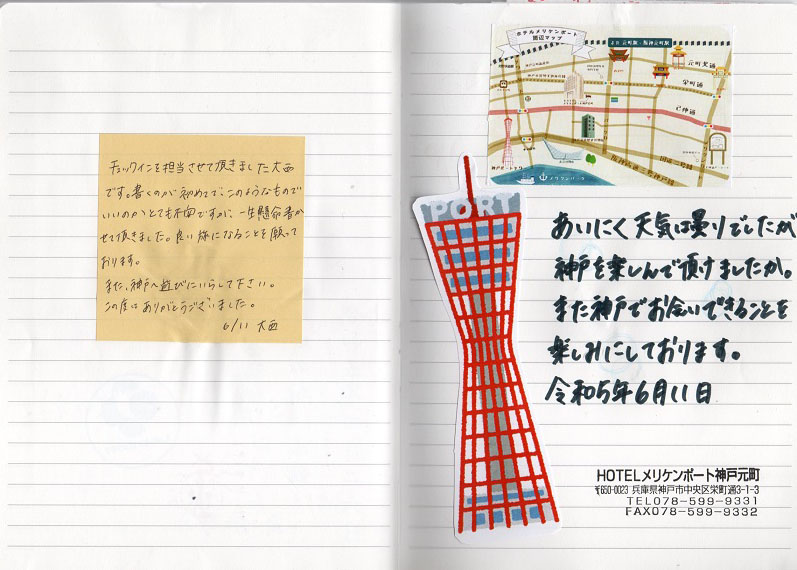 チェックインを担当させて頂きました大西
です。書くのが初めてで、このようなもので
いいのかとても不安ですが、一生懸命書か
せて頂きました。良い旅になることを願って
おります。
また、神戸へ遊びにいらして下さい。
この度はありがとうございました。
6/11 大西
ホテルメリケンポート
周辺マップ
元町駅・阪神元町駅
元町東通
栄町通
乙仲通
神戸ポートタワー
メリケンパーク
PORT
あいにく天気は曇りでしたが
神戸を楽しんで頂けましたか。
また神戸でお会いできることを
楽しみにしております。
令和5年6月11日
HOTELメリケンポート神戸元町
〒650-0023 兵庫県神戸市中央区栄町通3-1-3
TEL078-599-9331
FAX078-599-9332